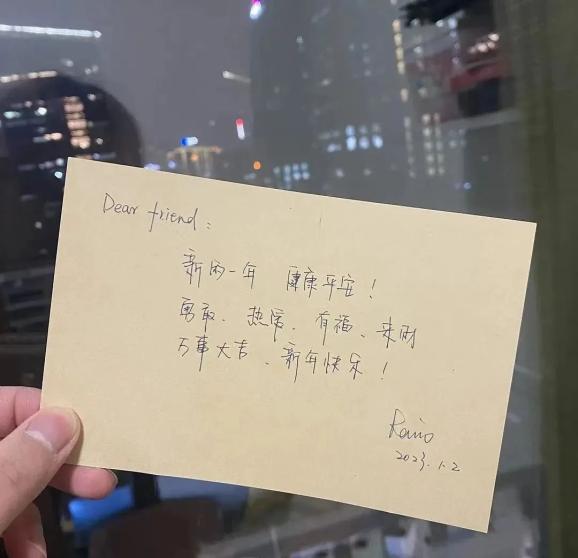 Dear friend:
新的一年 健康平安!
勇敢、热忱、有福、来财
万事大吉、新年快乐!
2023.1.2